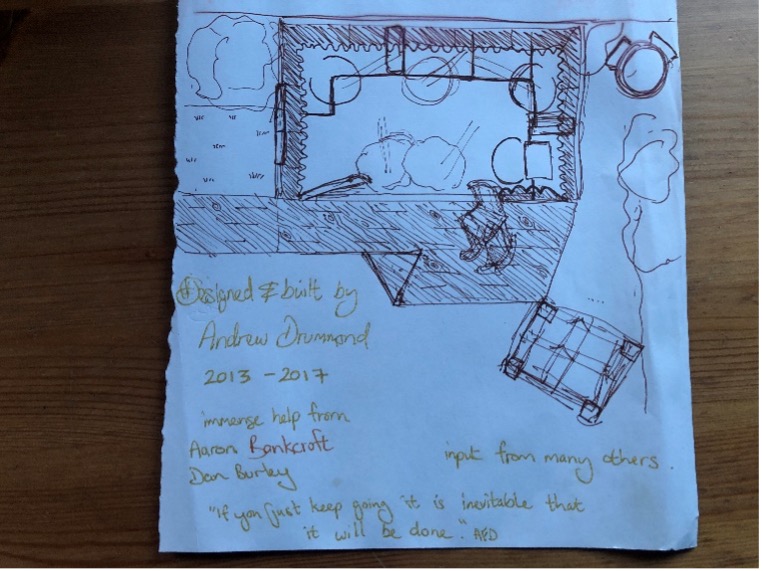 Designed & built by
Andrew Drummond
2013 - 2017
immense help from
Aaron Bankcroft
Dan Burley
input from many others.
"If you just keep going it is inevitable that
it will be done." AFD